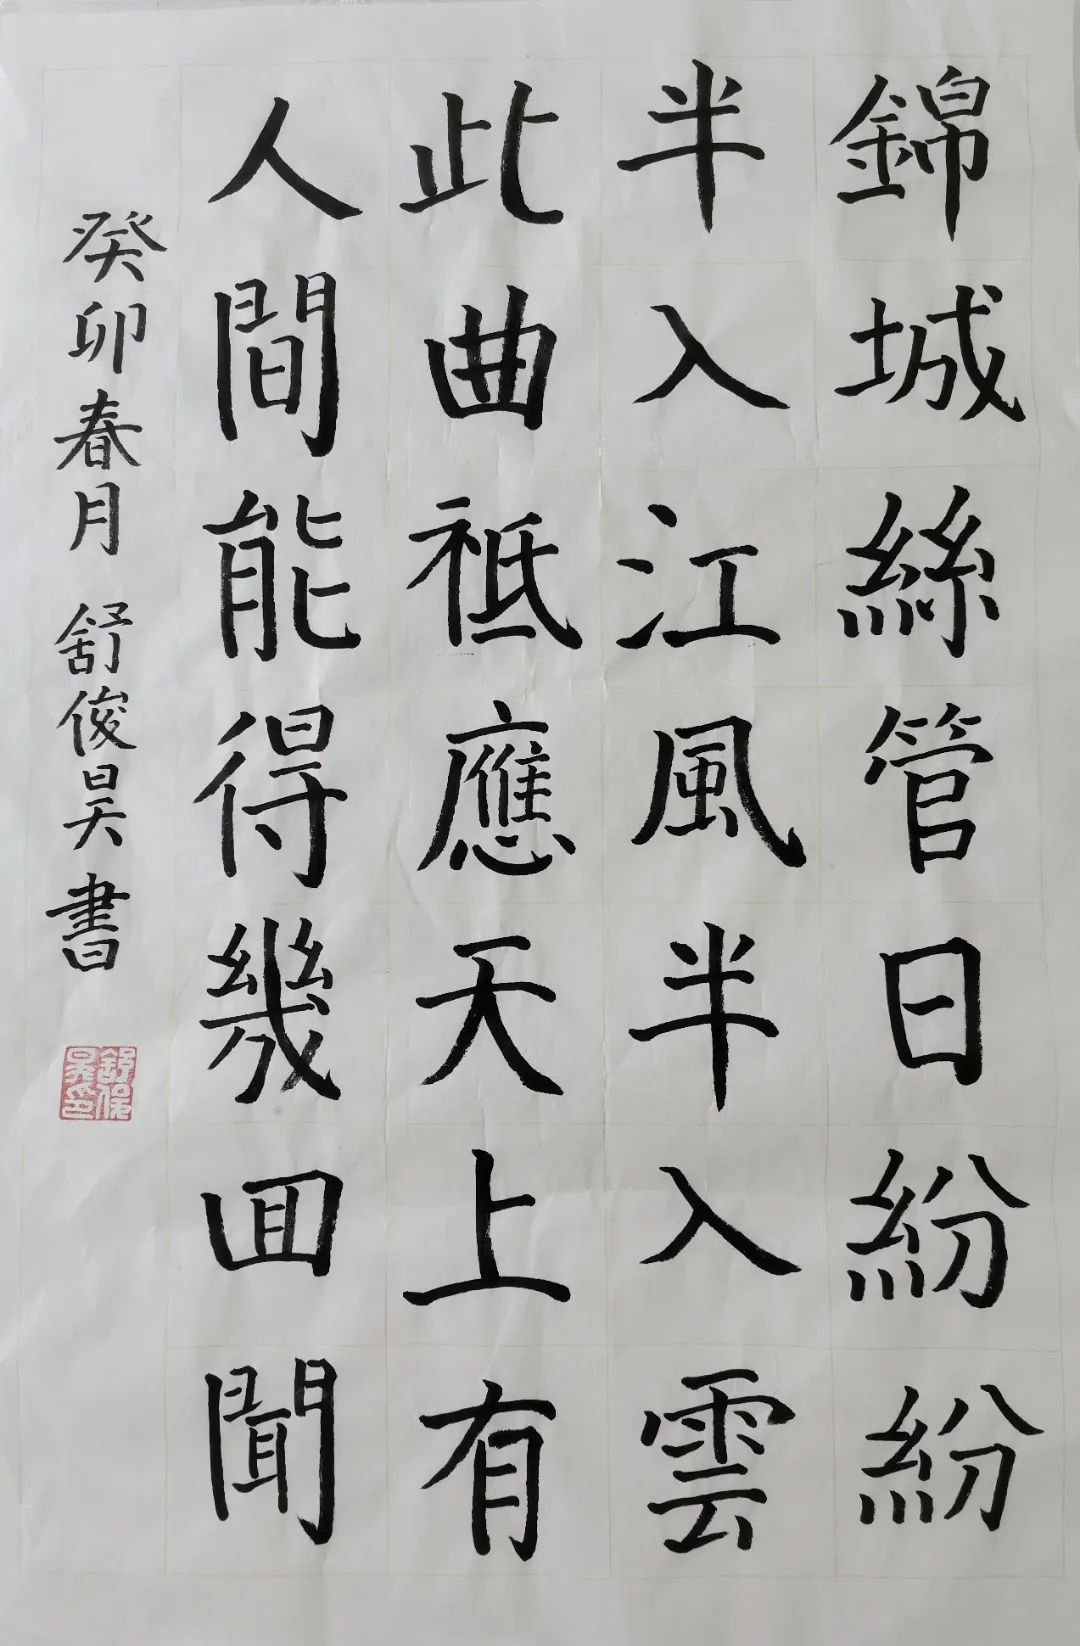 錦城絲管日紛紛
半入江風半入雲
此曲祗應天上有
人間能得幾回聞
癸卯春月 舒俊昊書
舒俊昊印